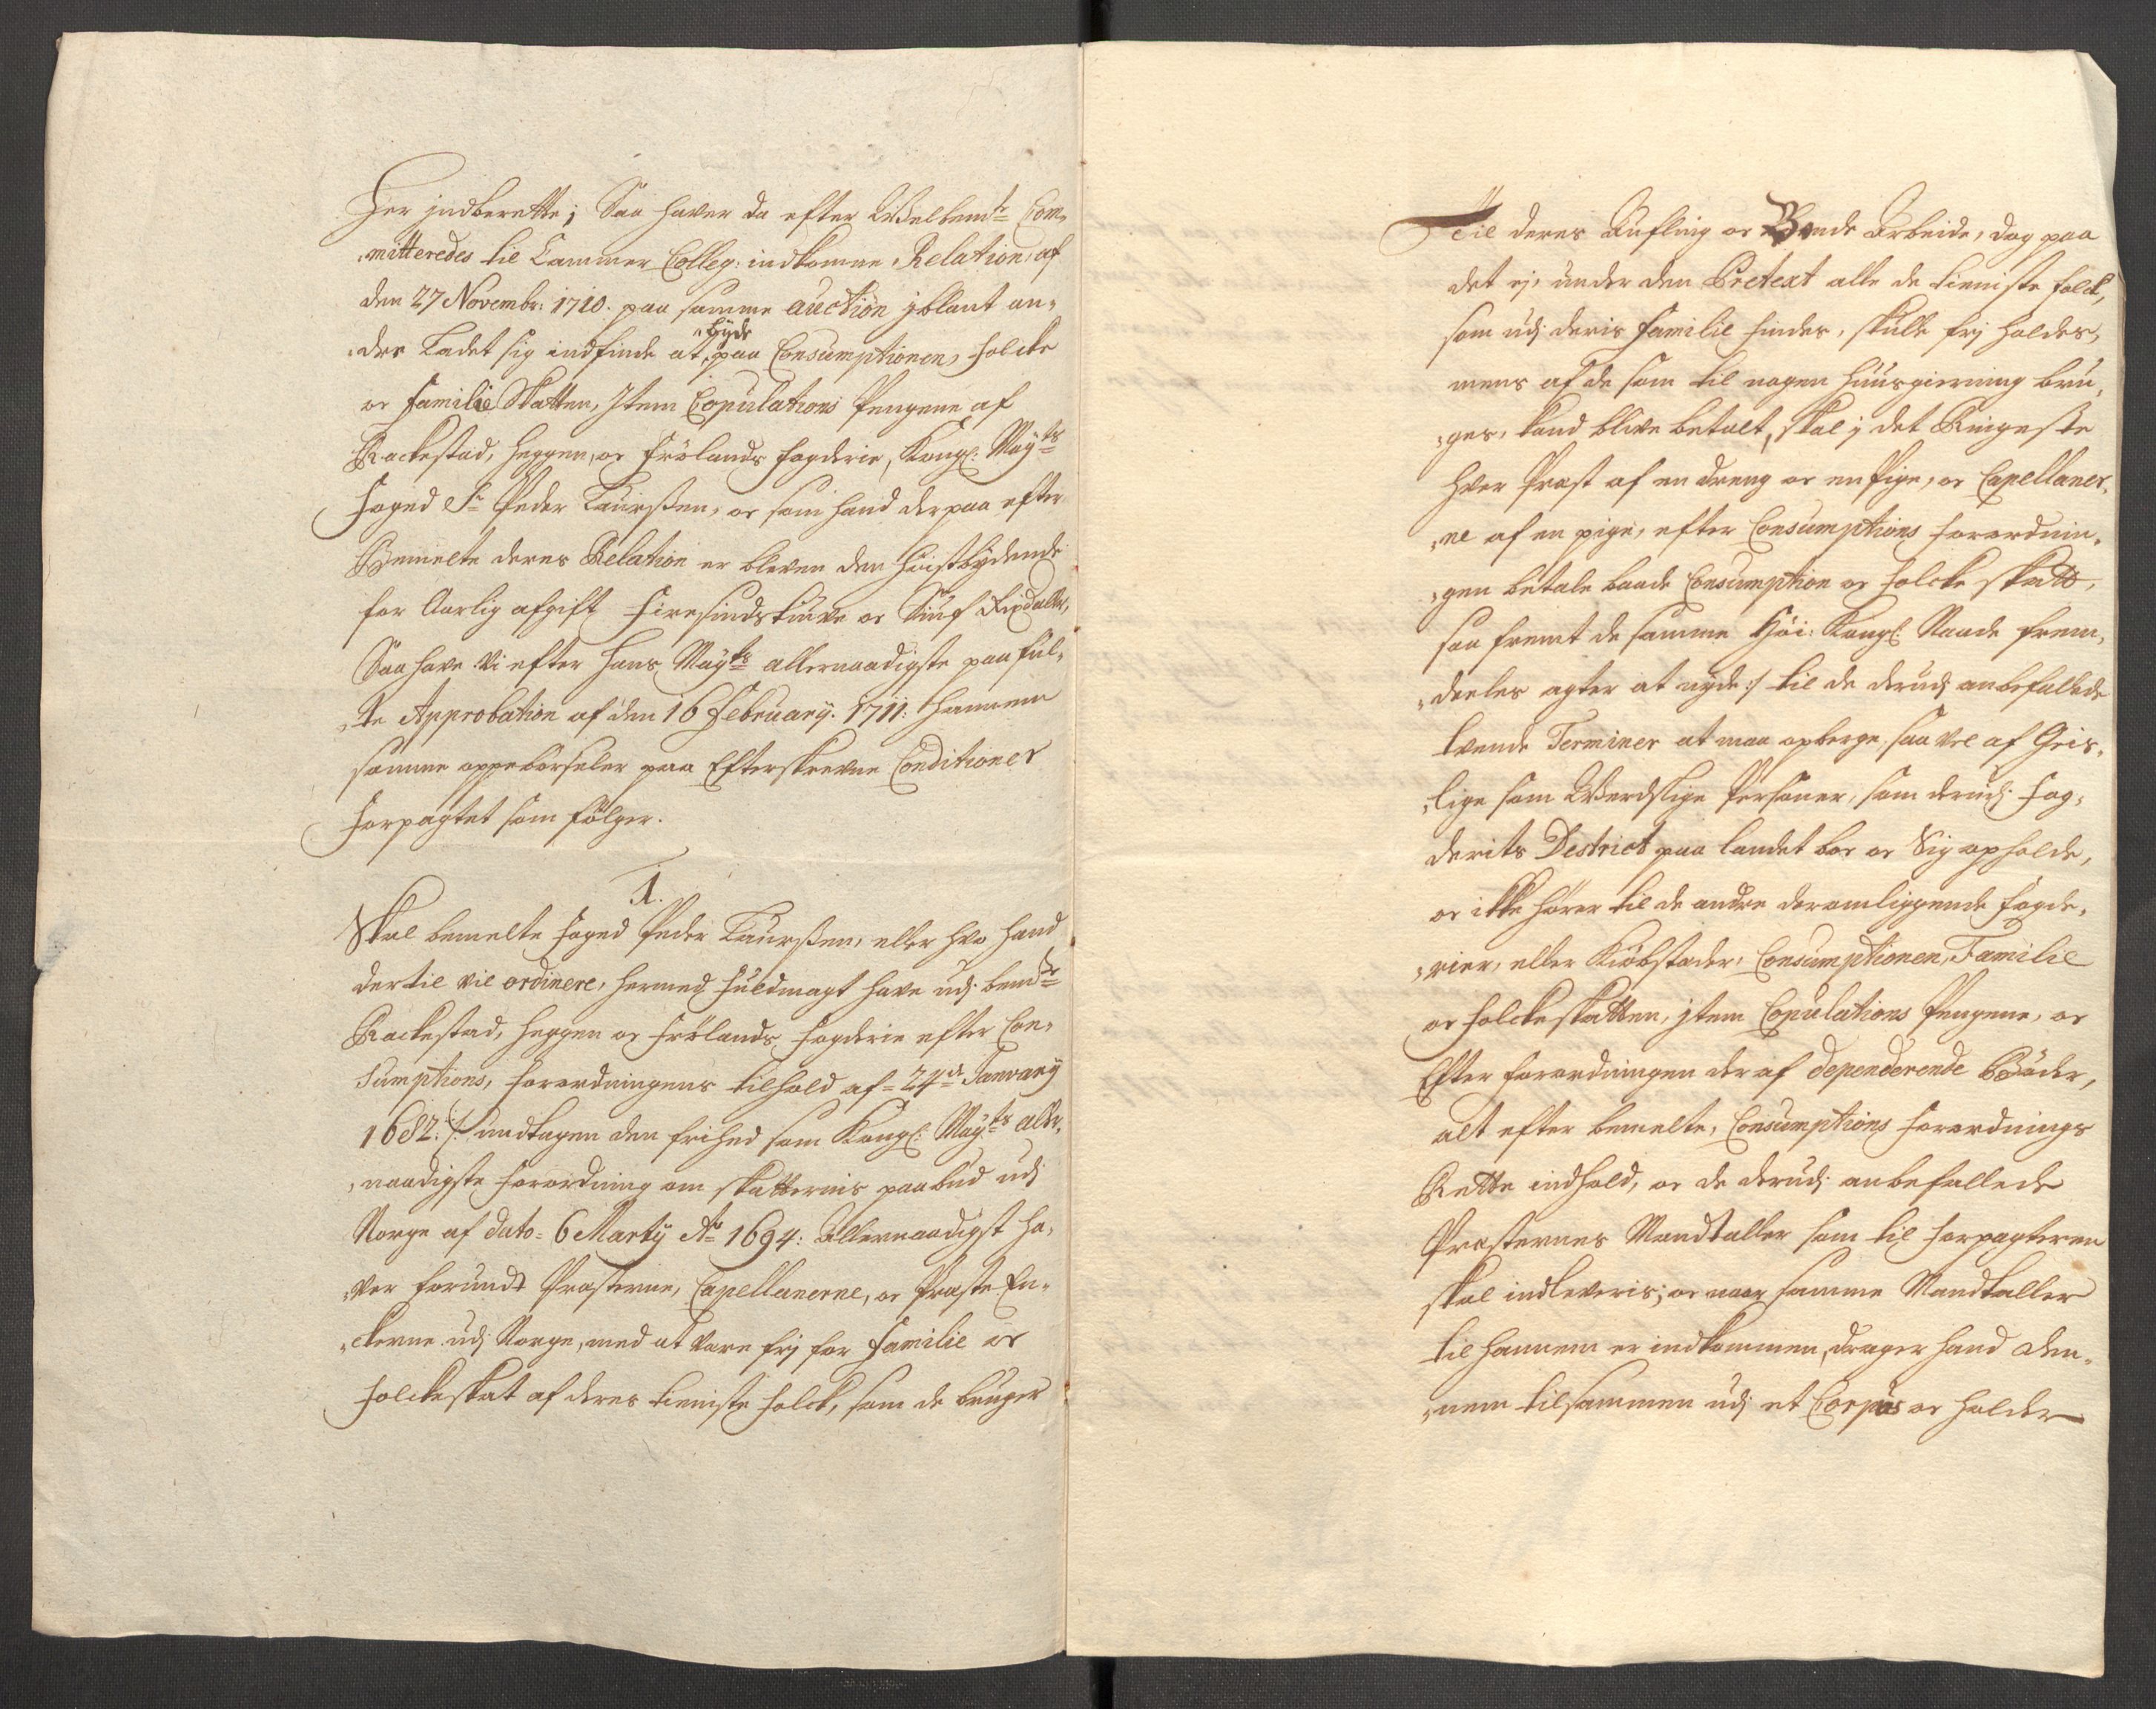 Her jndberette; Saa haver da efter Welbemte Com,
,mitteredes til Cammer Colleg: indkomne Relation af
den 27 Novembr: 1710. paa samme auction jblant an,
,dre Ladet sig indfinde at paa Consumptionen, Folcke
byde
oc Familie Skatten, Jtem Copulations Pengene af
Rackestad, Heggen, oc Frölands Fogderie, Kongl: Mayts
Foged Sr Peder Laurssen, oc som hand derpaa efter
Bemelte deres Relation er bleven den Høistbydende
for Aarlig afgift Firesindstiuve oc Siuf Rixdaller,
Saa have Vi efter Hans Mayts allernaadigste paaful,
,te Approbation af den 16 February. 1711: Hannem
samme oppebørseler paa Efterskrevne Conditioner
Forpagtet som følger.
1.
Skal bemelte Foged Peder Laurssen, eller hvo hand
dertil vil ordinere, hermed Fuldmagt have udj bemte
Rackestad, Heggen oc Frölands Fogderie efter Con,
sumptions, Forordningens tilhold af 24de January
1682:/: undtagen den frihed som Kongl: Mayts aller,
,naadigste Forordning om skatternis paabud udj
Norge af dato 6 Marty Ao 1694: Allernaadigst ha,
,ver forundt Præsterne, Capellanerne, oc Præste En,
,ckerne udj Norge, med at være frj for Familie oc
Folckeskat af deres tieniste folck, som de bruger
Til deres Aufling oc Bonde Arbeide, dog paa
det ej under den Pretext alle de tieniste folck,
som udj deris Familie findes, skulle frj holdes,
mens af de som til nogen huusgierning bru,
,ges, kand blive betalt, skal j det Ringeste
hver Præst af en dreng oc en Pige, oc Capellaner,
,ne af en pige, efter Consumptions Forordnin,
,gen betale baade Consumption oc Folcke skatt,
saa fremt de samme Høi: Kongl: Naade frem,
,deeles agter at nyde:/ til de derudj anbefallede
tvende Terminer at maa opberge, saa vel af Geis,
,lige som Werdslige Personer, som derudj Fog,
derits District paa landet boe oc Sig opholde,
oc ikke hører til de andre deromliggende Fogde,
,rier, eller Kiøbstæder, Consumptionen, Familie
oc Folckeskatten, jtem Copulations Pengene, oc
Efter Forordningen der af dependerende Bøder,
alt efter bemelte, Consumptions Forordnings
Rette indhold, oc de derudj anbefallede
Præsternes Mandtaller som til Forpagteren
skal indleveris; oc naar samme Mandtaller
til hannem er indkommen, drager hand dem,
,nem tilsammen udj et Corpus oc holder